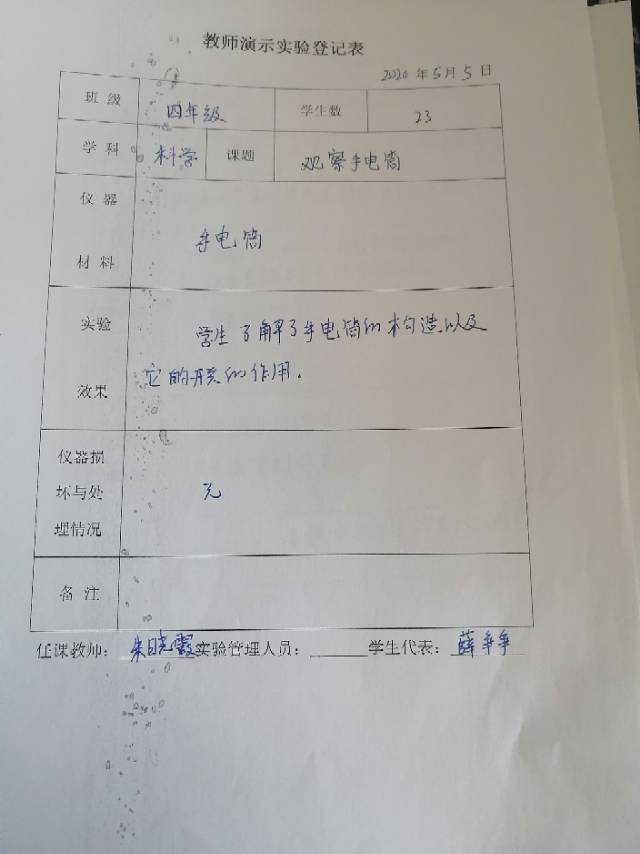 教师演示实验登记表
2020年5月5日
班级 四年级 学生数 23
学科 科学 课题 观察手电筒
仪器
材料 手电筒
实验 学生了解了手电筒的构造以及
效果 它的开关的作用.
仪器损
坏与处 无
理情况
备注
任课教师：朱晓霞 实验管理人员： 学生代表：薛争争